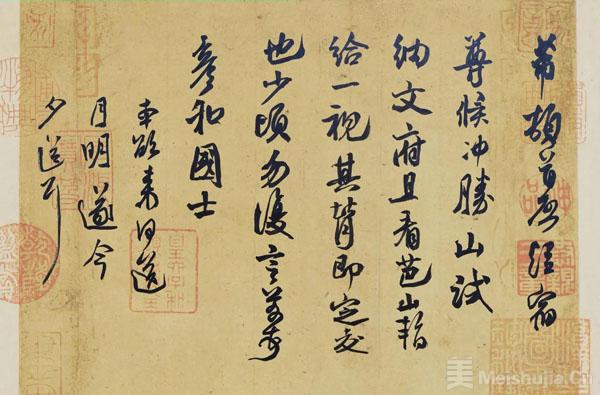 芾頓首啓經宿
尊候冲勝山試
納文府且看芭山暫
給一視其背即定交
也少頃勿復言芾頓首
彥和國士
本欲來日送
月明遂今
夕送耳
美 Meishujia.Cn